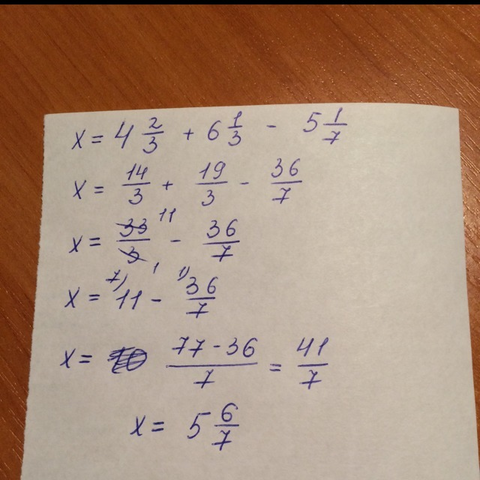 x = 4 2/3 + 6 1/3 - 5 1/7
x = 14/3 + 19/3 - 36/7
x = 33/3 11 1 - 36/7
x = 7) 11 - 1) 36/7
x = 77-36/7 = 41/7
x = 5 6/7